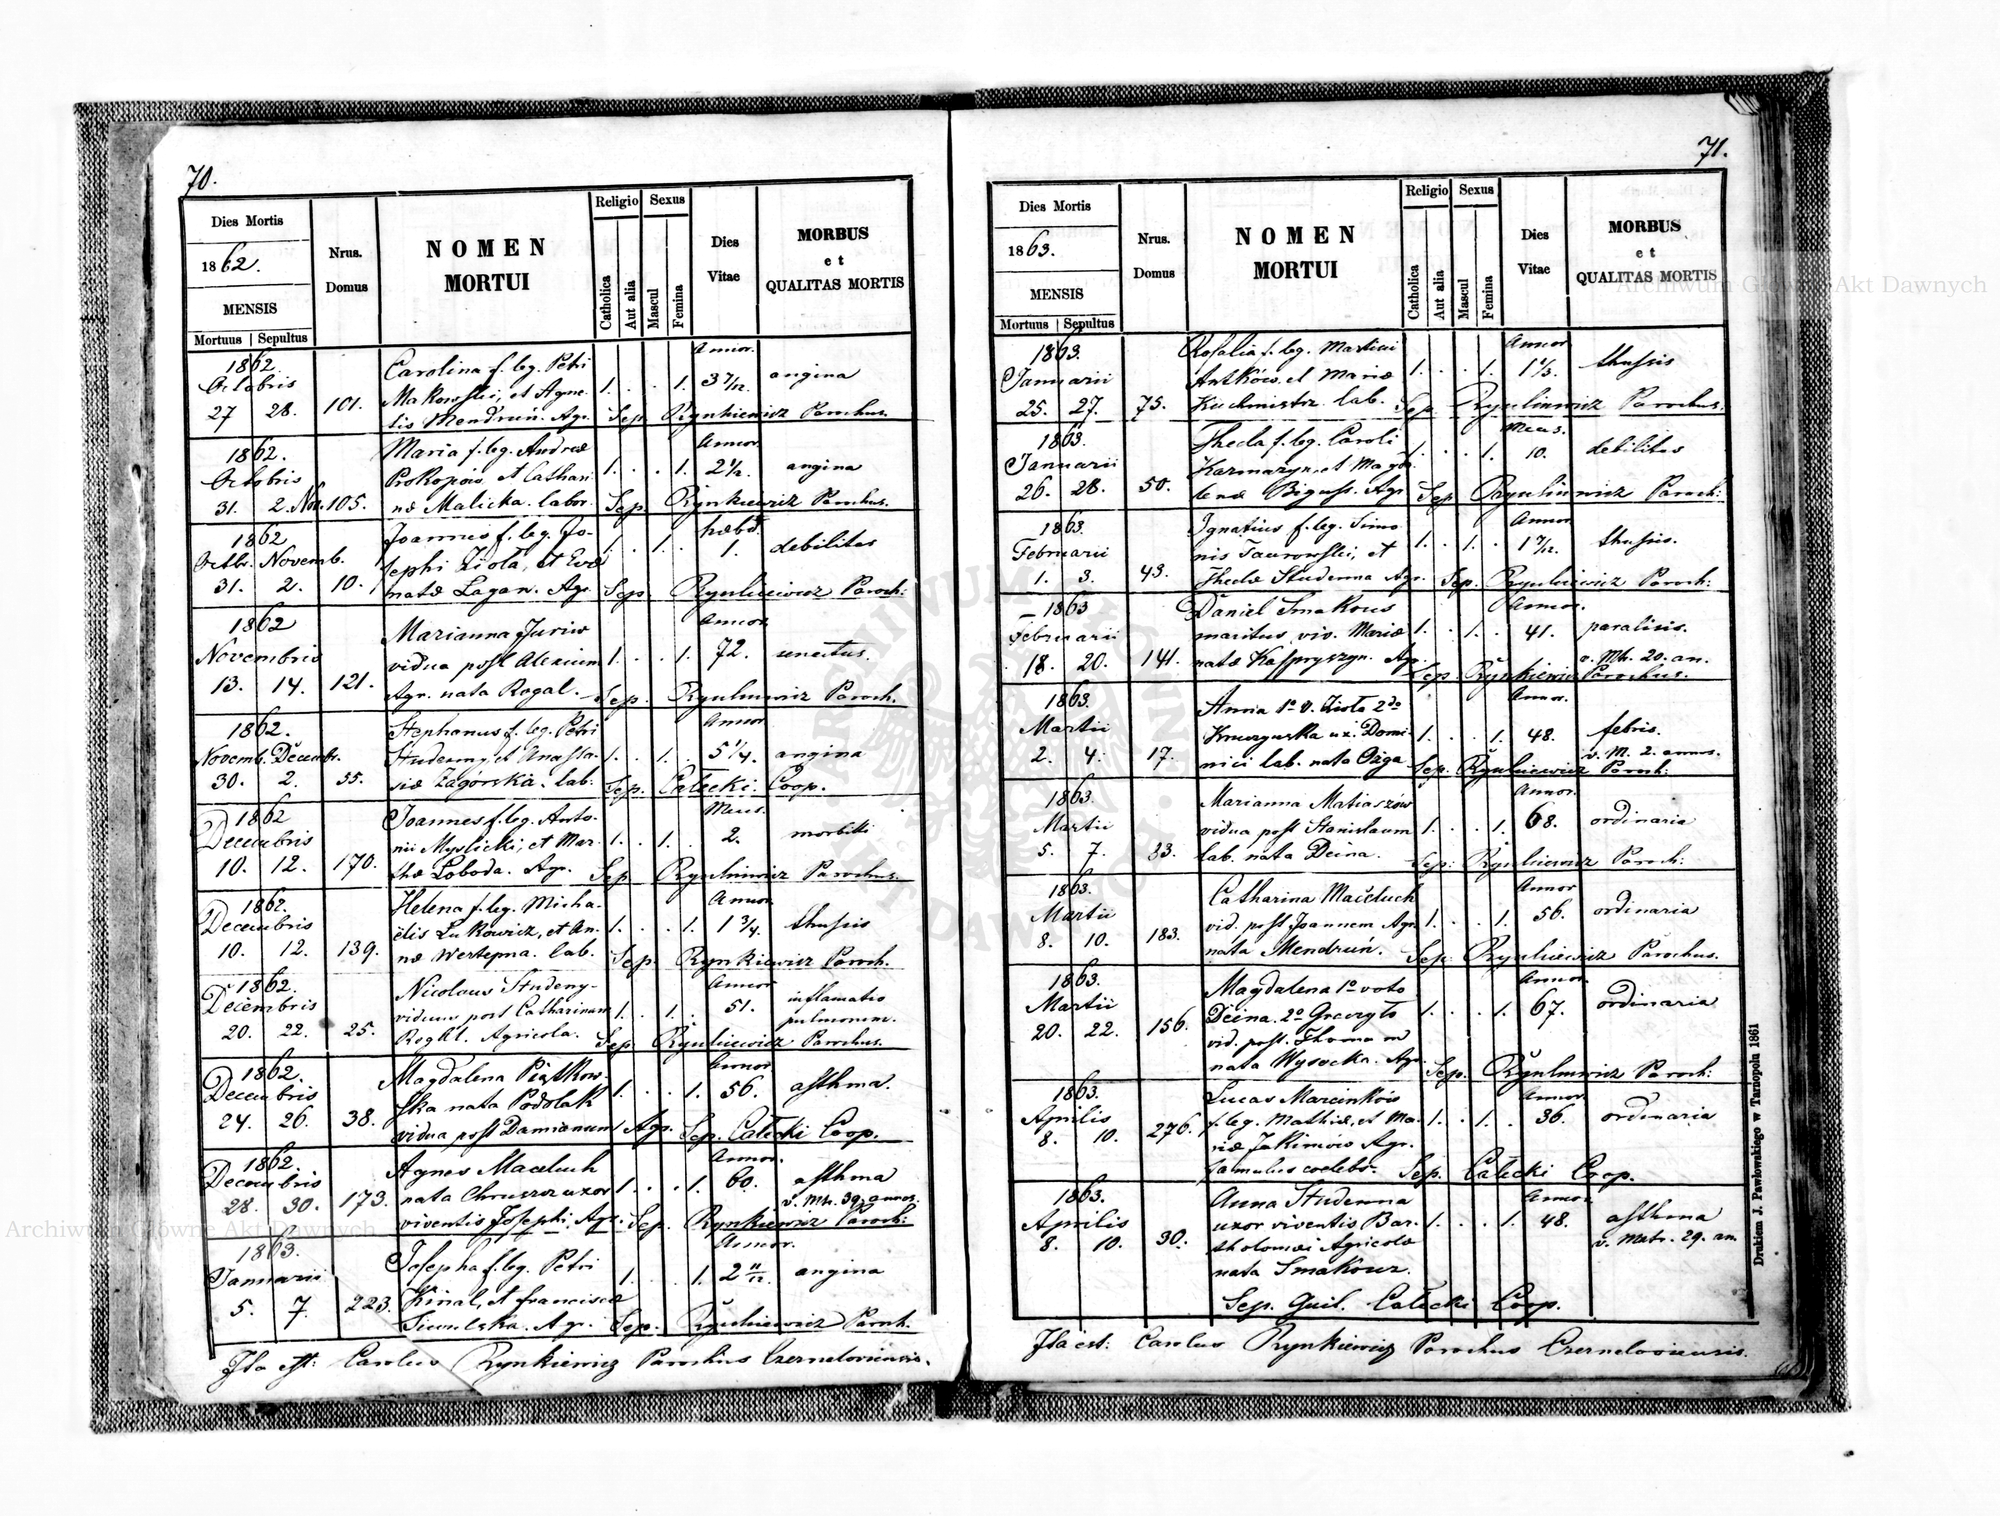 70.
Dies Mortis
1862.
MENSIS
Mortuus | Sepultus
Nrus.
Domus
NOMEN
MORTUI
Religio
Catholica
Aut alia
Sexus
Mascul
Femina
Dies
Vitae
MORBUS
et
QUALITAS MORTIS
1862. Carolina f. leg. Petri Annor.
Octobris Makowski, et Agne- 1. . . 1. 3 7/12. angina
27 28. 101. tis Mendruń. Agr. Sep. Rynkiewicz Parochus.
1862. Maria f. leg. Andreæ Annor.
Octobris Prokopów et Cathari 1. . . 1. 2 1/2. angina
31. 2. Nov. 105. næ Malicka. labor. Sep. Rynkiewicz Parochus.
1862 Joannes f. leg. Jo- hebd.
Octbr. Novemb. sephi Zioła, et Evæ 1. . 1. . 1. debilitas
31. 2. 10. natæ Lagan. Agr. Sep. Rynkiewicz Paroch:
1862 Marianna Juriw Annor.
Novembris vidua post Alexium 1. . . 1. 72. senectus.
13. 14. 121. Agr. nata Rogal. Sep. Rynkiewicz Paroch.
1862. Stephanus f. leg. Petri Annor
Novemb. Decembr. Studenny, et Anasta- 1. . 1. 5 1/4. angina
30. 2. 55. siæ Zagórska. lab: Sep. Całecki Coop.
1862 Joannes f. leg. Anto- Mens.
Decembris nii Myslicki, et Mar- 1. . 1. 2. morbilli
10. 12. 170. thæ Łoboda. Agr. Sep. Rynkiewicz Parochus.
1862. Helena f. leg. Micha- Annor.
Decembris ëlis Lukowicz, et An- 1. . . 1. 1 3/4. thussis
10. 12. 139. næ Wertepna. lab. Sep. Rynkiewicz Paroch.
1862. Nicolaus Studeny- Annor inflamatio
Decembris viduus post Catharinam 1. . 1. . 51. pulmonum.
20. 22. 25. Agricola. Sep. Rynkiewicz Parochus.
1862. Magdalena Piątkow- Annor
Decembris ska nata Podolak 1. . . 1. 56. asthma.
24. 26. 38. vidua post Damianum Agr. Sep. Całecki Coop.
1862. Agnes Maceluch Annor. asthma
Decembris nata Chruszcz uxor 1. . . 1. 60. v. Mtr. 39 annos.
28. 30. 173. viventis Josephi. Agr. Sep. Rynkiewicz Paroch:
1863. Josepha f. leg. Petri Annor.
Januarii Kinal, et Franciscæ 1. . . 1. 2 11/12. angina
5. 7. 223. Agr. Sep. Rynkiewicz Paroch.
Ita est: Carolus Rynkiewicz Parochus Czerneloviensis.
71.
Dies Mortis
1863.
MENSIS
Mortuus | Sepultus
Nrus.
Domus
NOMEN
MORTUI
Religio
Catholica
Aut alia
Sexus
Mascul
Femina
Dies
Vitae
MORBUS
et
QUALITAS MORTIS
1863. Rosalia f. leg. Martini Annor
Januarii Antków. et Mariæ 1. . . 1. 1 1/3. thussis
25. 27. 75. Kuchmistrz lab. Sep. Rynkiewicz Parochus.
1863 Thecla f. leg. Caroli Mens.
Januarii Karmazyn, et Magda 1. . . 1. 10. debilitas
26. 28. 50. lenæ Agr. Sep. Rynkiewicz Paroch:
1863 Ignatius f. leg. Simo Annor
Februarii nis Taurowski, et 1. . 1. . 1 7/12. thussis.
1. 3. 43. Theclæ Studenna Agr. Sep. Rynkiewicz Paroch:
1863 Daniel Smakous Annor.
Februarii maritus viv. Mariæ 1. . 1. . 41. paralisis.
18. 20. 141. natæ Kaspryszyn. Agr. v. Mtr. 20. an.
Sep. Rynkiewicz Parochus.
1863. Anna 1º v. Zioła 2do Annor.
Martii ux. Domi 1. . . 1. 48. febris.
2. 4. 17. nici lab. nata Ożga v. M. 2. annos.
Sep. Rynkiewicz Paroch:
1863. Marianna Matiaszów Annor.
Martii vidua post Stanislaum 1. . . 1. 68. ordinaria
5. 7. 83. lab. nata Deina. Sep. Rynkiewicz Paroch:
1863. Catharina Maceluch Annor
Martii vid. post Joannem Agr. 1. . . 1. 56. ordinaria
8. 10. 183. nata Mendruń. Sep. Rynkiewicz Parochus.
1863. Magdalena 1º voto Annor.
Martii Deina. 2º 1. . . 1. 67. ordinaria
20. 22. 156. vid. post. Thomam
nata Wysocka. Agr. Sep. Rynkiewicz Paroch:
1863. Lucas Marcinków Annor.
Aprilis f. leg. Mathiæ, et Ma- 1. . 1. . 36. ordinaria
8. 10. 276. riæ Jakimów Agr.
famulus coelebs. Sep. Całecki Coop.
1863. Anna Studenna Annor
Aprilis uxor viventis Bar- 1. . . 1. 48. asthma
8. 10. 30. tholomæi Agricolæ v. Matr. 29. an.
nata Smakouz.
Sep. Guil. Całecki Coop.
Ita est: Carolus Rynkiewicz Parochus Czerneloviensis.
Drukiem J. Pawłowskiego w Tarnopolu 1861
Archiwum Główne Akt Dawnych
Archiwum Główne Akt Dawnych
ARCHIWUM GŁÓWNE AKT DAWNYCH